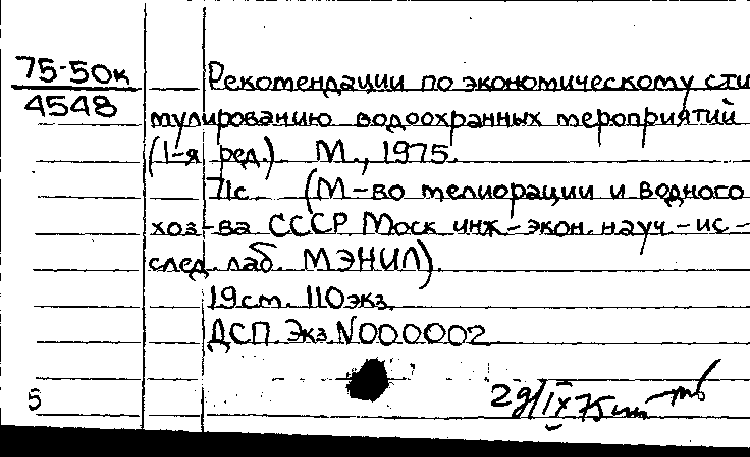 75-50к
4548
Рекомендации по экономическому сти
мулированию водоохранных мероприятий
(1-я ред.). М., 1975.
71с. (М-во мелиорации и водного
хоз-ва СССР. Моск. инж.-экон. науч.-ис-
след. лаб. МЭНИЛ).
19см. 110экз.
ДСП. Экз. N000002
5
29/IX 75